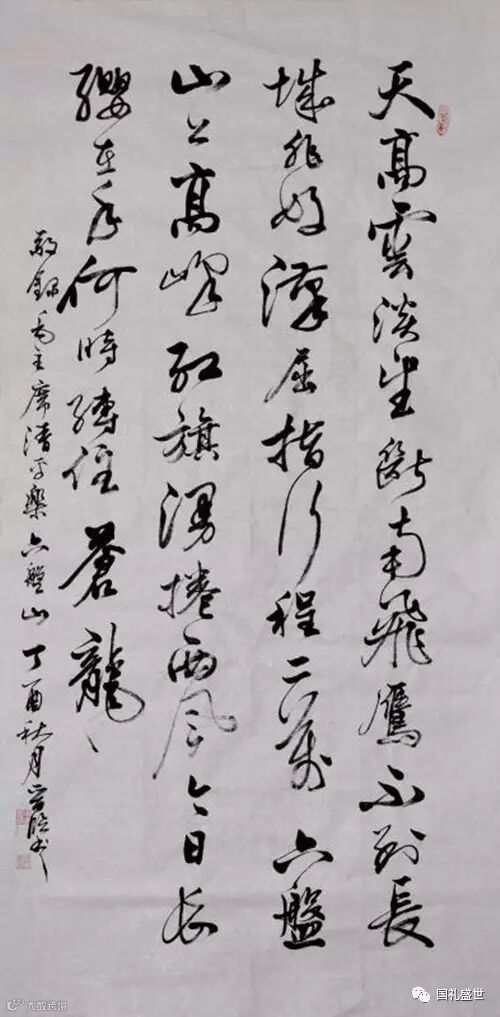 天高雲淡望斷南飛鴈不到長
城非好漢屈指行程二萬六盤
山上高峰紅旗漫捲西風今日長
纓在手何時縛住蒼龍
敬錄毛主席清平樂六盤山丁酉秋月書
大数跨境
国礼盛世